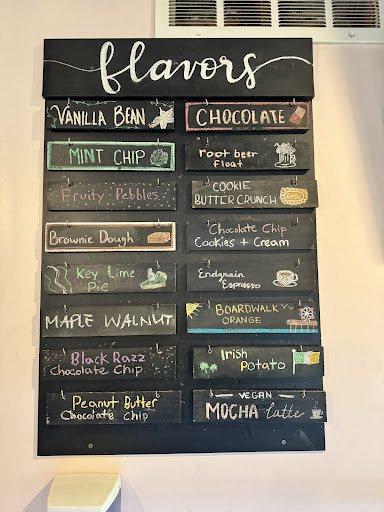 flavors
VANILLA BEAN
CHOCOLATE
MINT CHIP
root beer
float
Fruity Pebbles
COOKIE
BUTTER CRUNCH
Brownie Dough
Chocolate Chip
Cookies + Cream
Key Lime
Pie
Endgrain
Espresso
MAPLE WALNUT
BOARDWALK
ORANGE
Black Razz
Chocolate Chip
Irish
Potato
Peanut Butter
Chocolate Chip
VEGAN
MOCHA latte